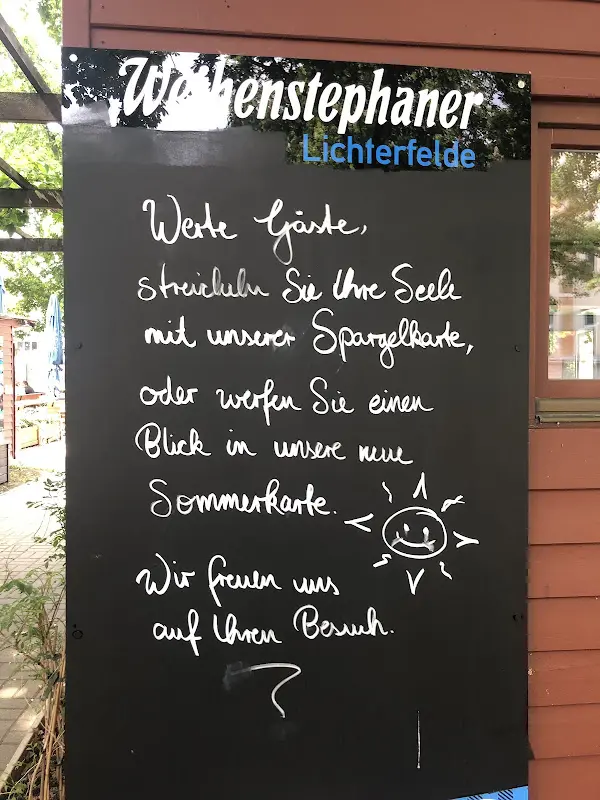 Weihenstephaner
Lichterfelde
Werte Gäste,
streicheln Sie Ihre Seele
mit unserer Spargelkarte,
oder werfen Sie einen
Blick in unsere neue
Sommerkarte.
Wir freuen uns
auf Ihren Besuch.